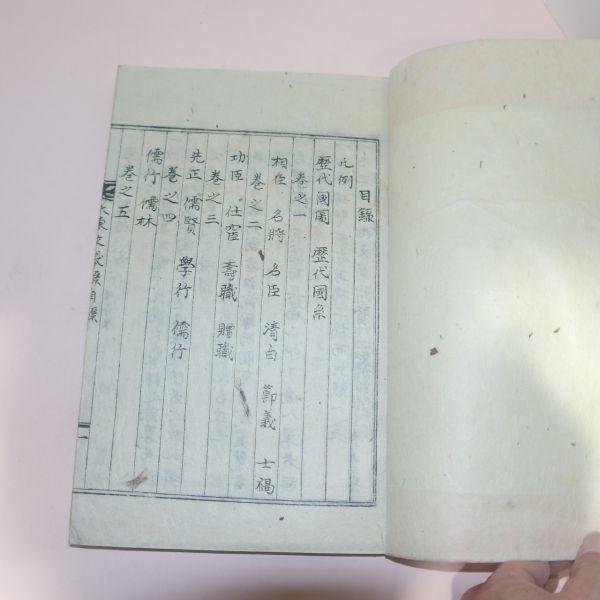 目錄
凡例
歷代國圖 歷代國系
卷之一
相臣 名將 名臣 淸白 節義 士禍
卷之二
功臣 仕宦 壽職 贈職
卷之三
先正 儒賢 學行 儒行
卷之四
儒行 儒林
卷之五
大東文獻錄目錄
一